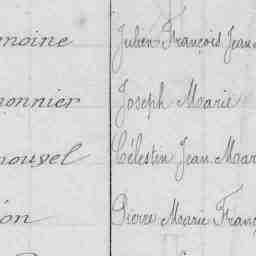 moine Julien François Jean
monnier Joseph Marie
nouvel Célestin Jean Mar
on Pierre Marie Franç